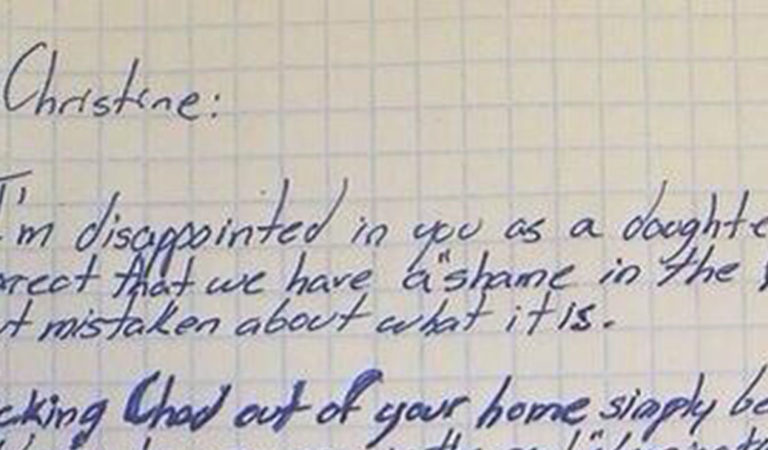 Christine:
I'm disappointed in you as a daughte
rrect that we have a "shame in the
t mistaken about what it is.
cking Chad out of your home simply be